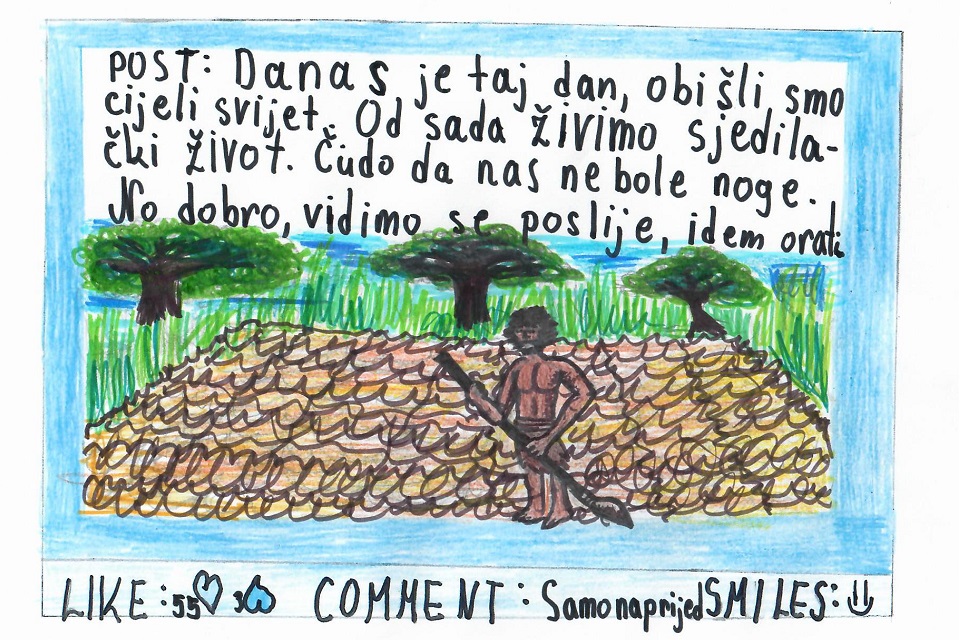 POST: Danas je taj dan, obišli smo
cijeli svijet. Od sada živimo sjedila-
čki život. Čudo da nas ne bole noge.
No dobro, vidimo se poslije, idem orati
LIKE: 55 3 COMMENT: Samo naprijed SMILES: